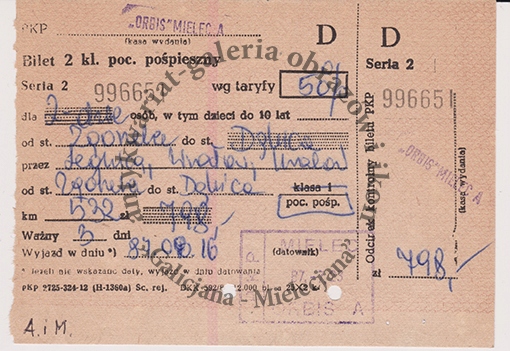 PKP „ORBIS" MIELEC A D
(kasa wydania)
Bilet 2 kl. poc. pośpieszny
Seria 2 996651 wg taryfy 50%
dla 2-dzie osób, w tym dzieci do 10 lat
od st. Zgorzelec do st. Dębica
przez Legnica, Wrocław, Kraków
od st. Zgorzelec do st. Dębica klasa 1
km 532 zł 798,- poc. pośp.
Ważny 3 dni
Wyjazd w dniu *) 87.08.16 (datownik)
* Jeżeli nie wskazano daty, wyjazd w dniu datowania
PKP 2725-324-12 (H-1360a) Sc. rej.
MIELEC
ORBIS A
A.i M.
D
Seria 2
996651
Odcinek kontrolny biletu PKP
„ORBIS" MIELEC A
(kasa wydania)
zł 798,-
antykwariat-galeria obrazów i ikon
"Galicjana - Mielecjana"